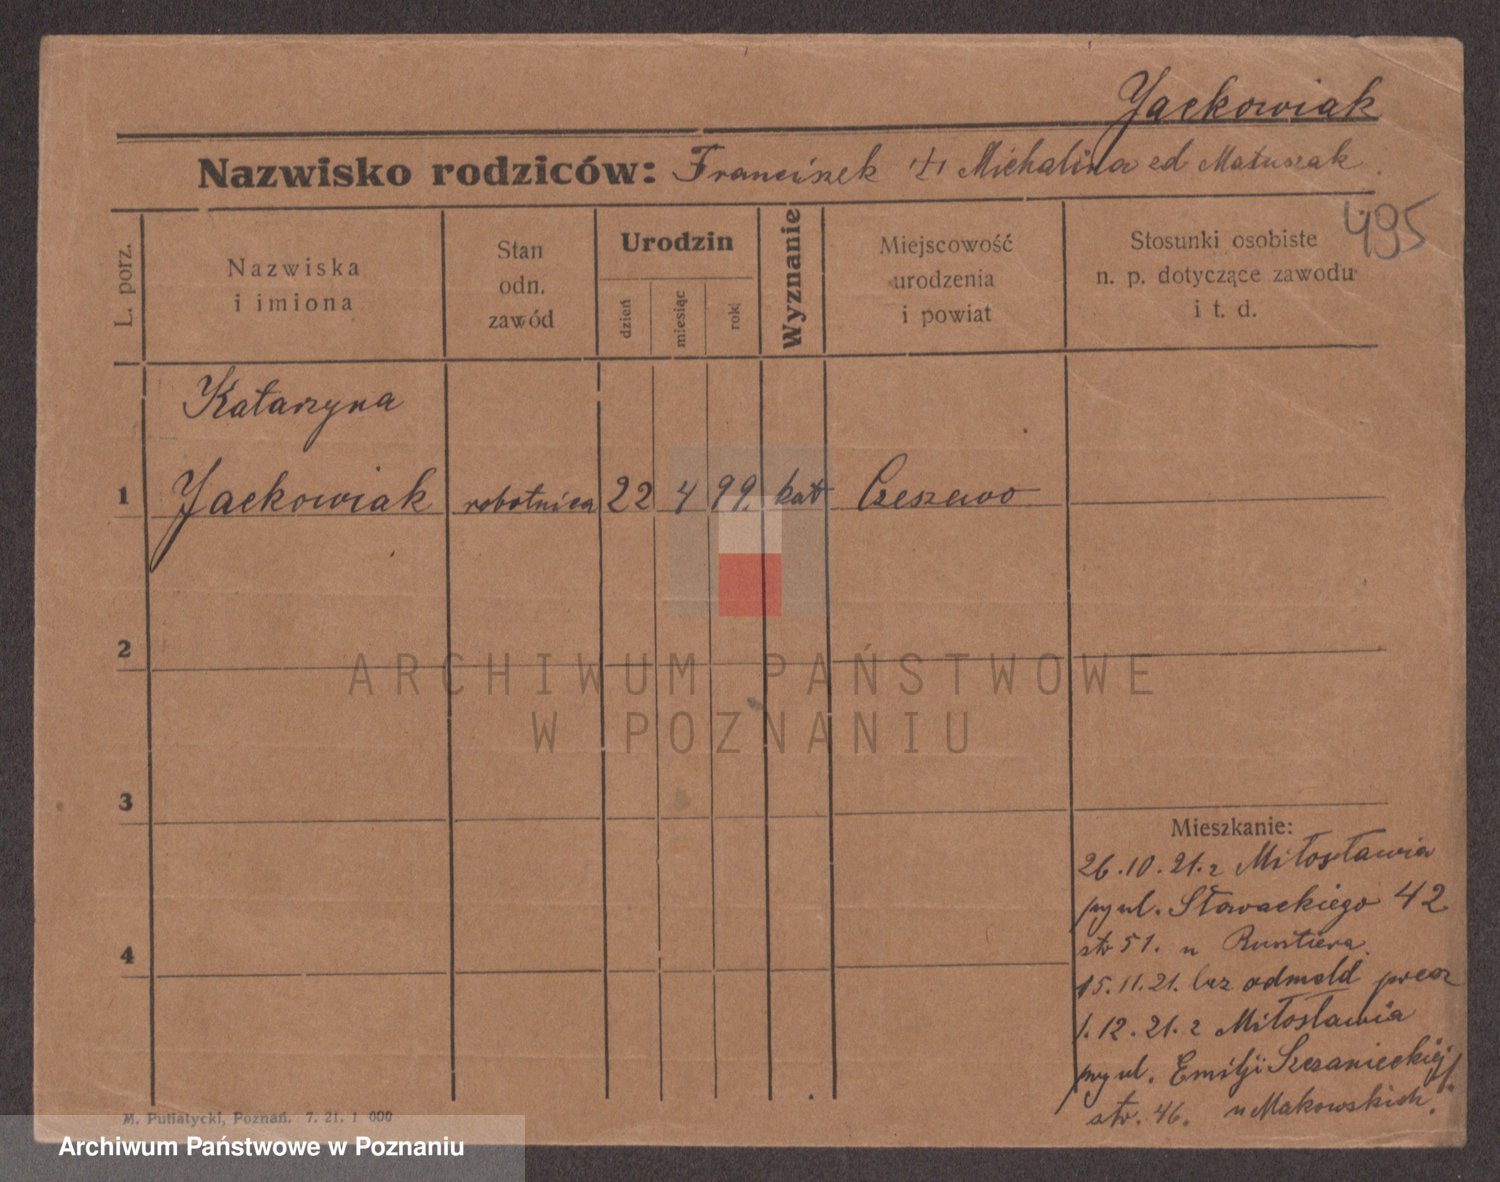 Jackowiak
Nazwisko rodziców: Franciszek i Michalina zd Matuszak
495
L. porz.
Nazwiska
i imiona
Stan
odn.
zawód
Urodzin
dzień
miesiąc
rok
Wyznanie
Miejscowość
urodzenia
i powiat
Stosunki osobiste
n. p. dotyczące zawodu
i t. d.
Katarzyna
1 Jackowiak robotnica 22 4 99. kat Czeszewo
2
ARCHIWUM PAŃSTWOWE
W POZNANIU
3
Mieszkanie:
26.10.21. z Miłosławia
przy ul. Słowackiego 42
str 51. u
4
15.11.21. bez odmeld precz
1.12.21. z Miłosławia
przy ul. Emilji Szczanieckiej
str. 46. u Makowskich.
M. Putiatycki, Poznań. 7. 21. 1 000
Archiwum Państwowe w Poznaniu